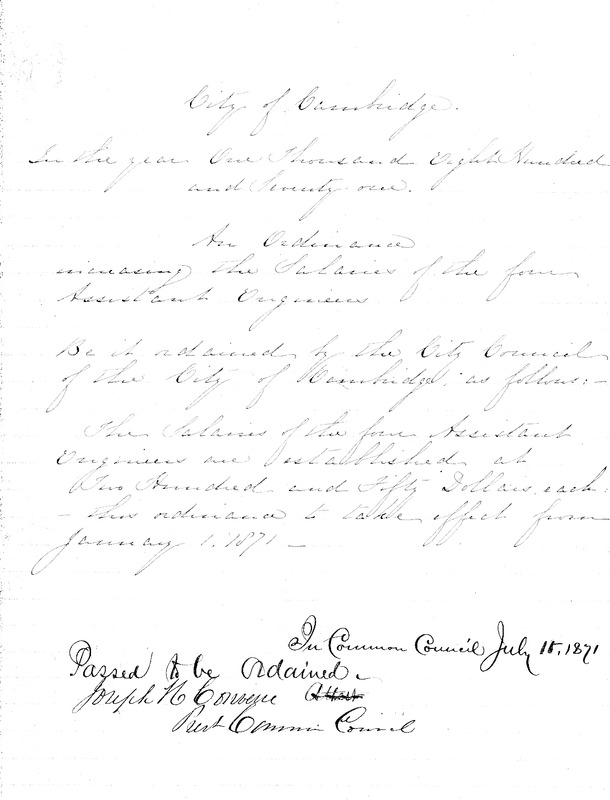 City of Cambridge.
In the year One Thousand Eight Hundred
and Seventy one.
An Ordinance
increasing the Salaries of the four
Assistant Engineers
Be it ordained by the City Council
of the City of Cambridge, as follows:-
The Salaries of the four Assistant
Engineers are established at
Two Hundred and Fifty Dollars each
- this ordinance to take effect from
January 1. 1871 -
In Common Council July 1871
Passed to be Ordained.
Joseph H Converse
Prest Common Council